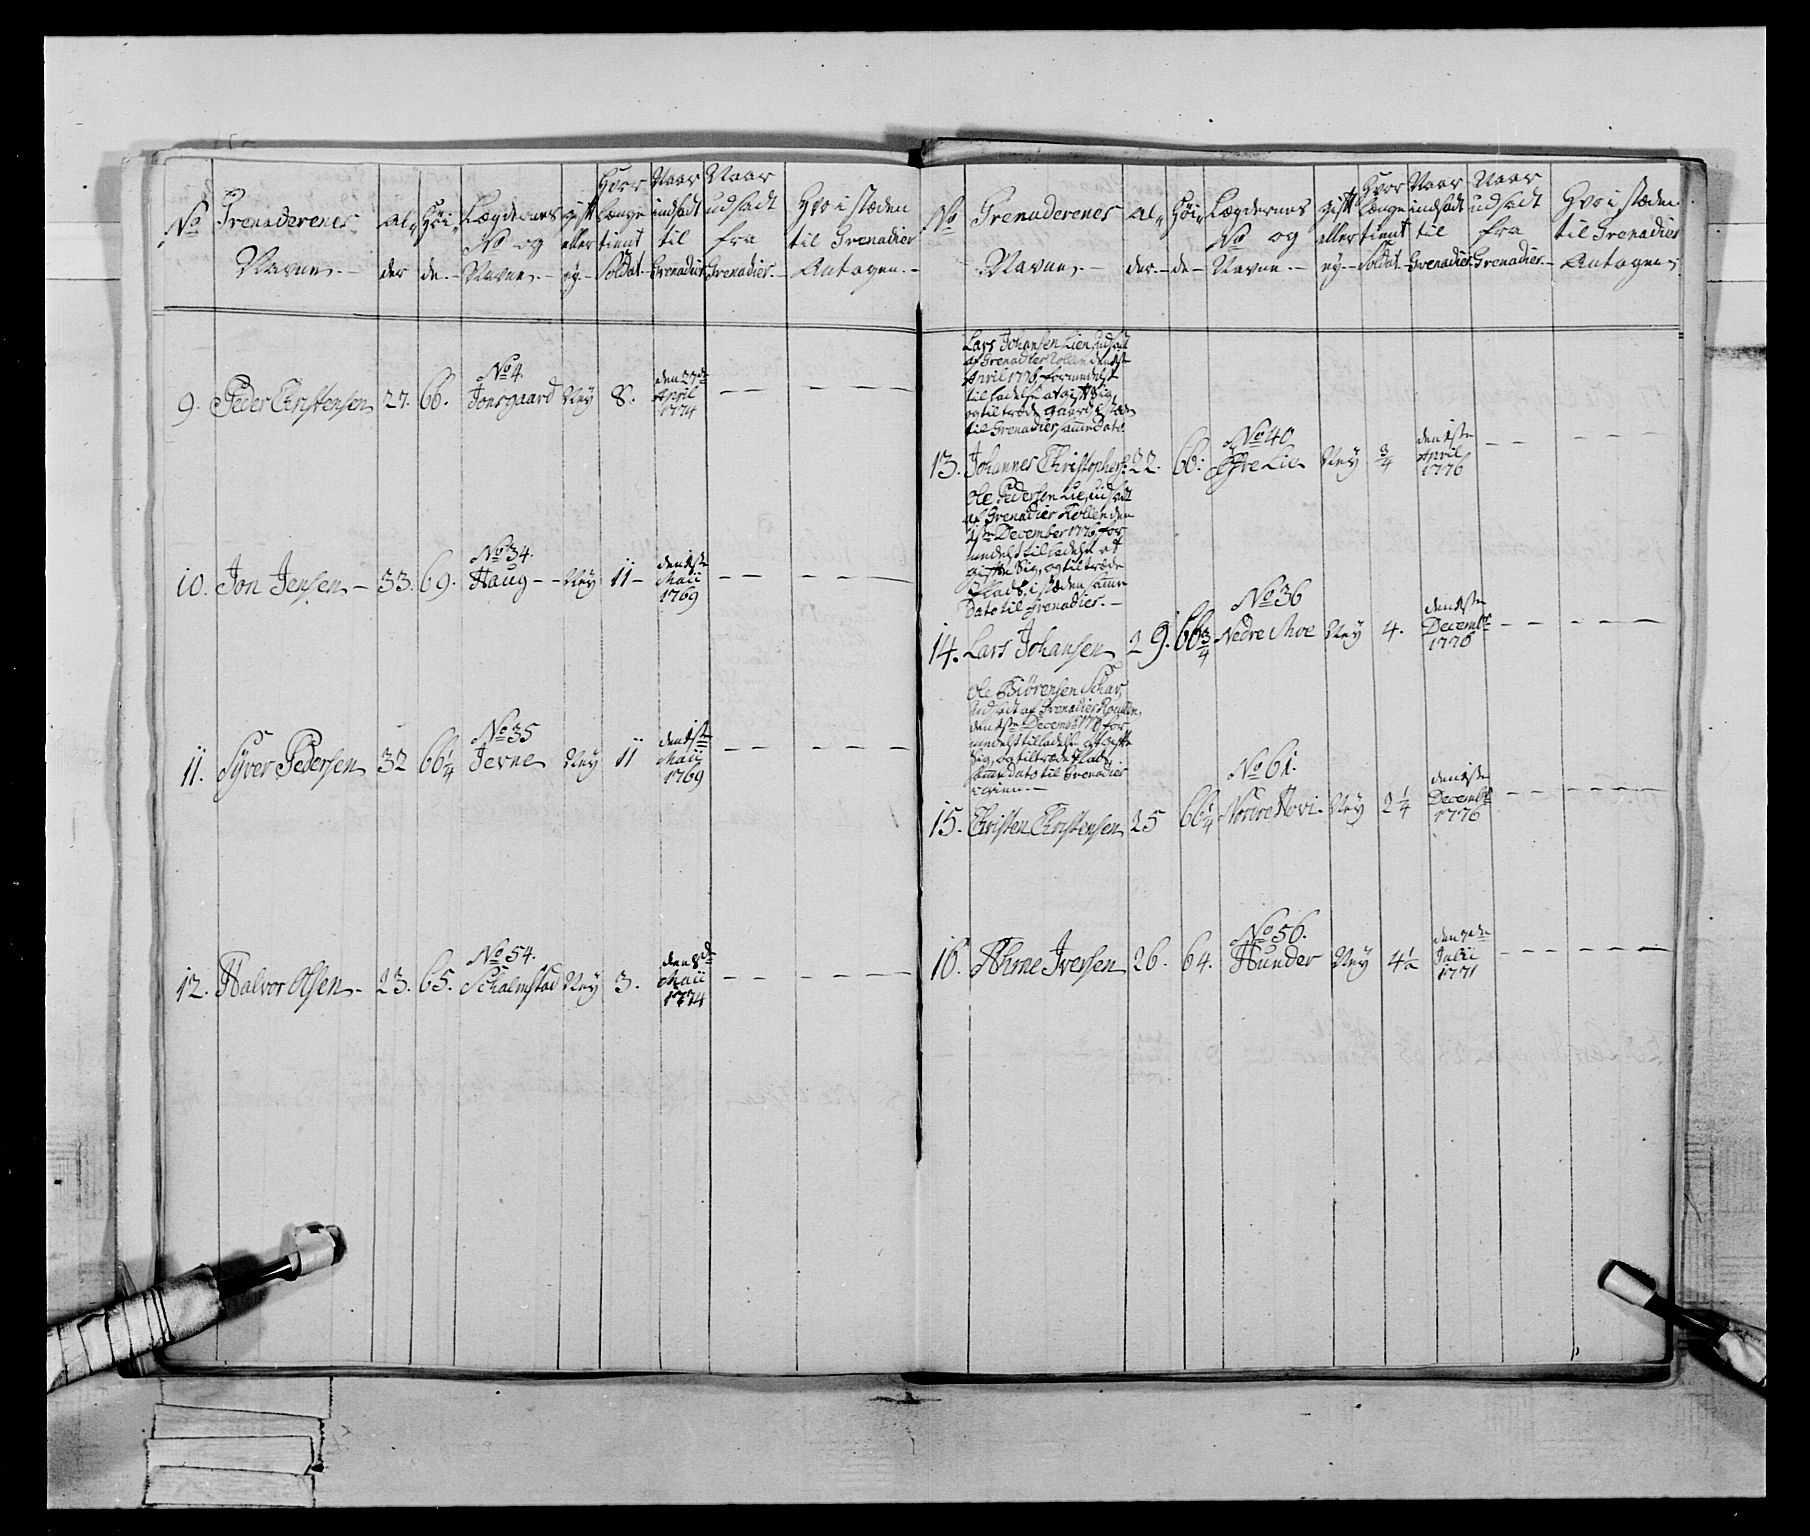 No Grenaderenes Navne. Al„ der Höi„ de. Lægdernes No og Navne. gift eller ey. Hvor længe tient Soldat. Naar indsadt til Grenadier Naar udsadt fra Grenadier. Hvo i stæden til Grenadier Antagen.
9. Peder Christensen 27. 66. No 4. Jonsgaard Ney 8. den 27de April 1774 — —
10. Jon Jensen — 33. 69. No 34. Haug — Ney 11 — den 1ste Maii 1769 — —
11. Syver Pedersen 32 66 1/4 No 35 Jevne Ney 11 den 1ste Maij 1769 — —
12. Halvor Olsen. 23. 65. No 54. Schalmstad Ney 3. den 8de Maii 1774 — —
No Grenaderenes Navne. Al„ der. Höi„ de Lægdernes No og Navne. gift eller ey. Hvor længe tient Soldat. Naar indsadt til Grenadier. Naar udsadt fra Grenadier. Hvo i stæden til Grenadier Antagen.
Lars Johansen Lien, udsadt
af Grenadier Rollen den 1ste
April 1776, formedelst
tilladelse at gifte Sig,
og tiltræde gaard, I stæden
til Grenadier, samme Dato
13. Johannes Christophers: 22. 66. No 40 Øfre Lie Ney 3/4 den 1ste April 1776 — —
Ole Pedersen Lie, udsadt
af Grenadier Rollen den
1ste December 1776, for
medelst tilladelse at
gifte Sig, og tiltræde
Plads, i stæden samme
Dato til Grenadier. —
14. Lars Johansen 29. 66 3/4 No 36 Nedre Moe Ney 4. den 1ste Decembr 1776 — —
Ole Biörensen Schar,
Udsadt af Grenadier Roullen,
den 1ste Decembr 1776 for
medelst tilladelse at gifte
Sig, og tiltræde Plads,
samme Dato til Grenadier
igien. —
15. Christen Christensen 25 66 1/4 No 61. Nordre Hovi. Ney 2 1/4 den 1ste Decembr 1776 — —
16. Ahrne Iversen 26. 64. No 56. Hunder Ney 4 1/2 den 9de Julii 1771 — —